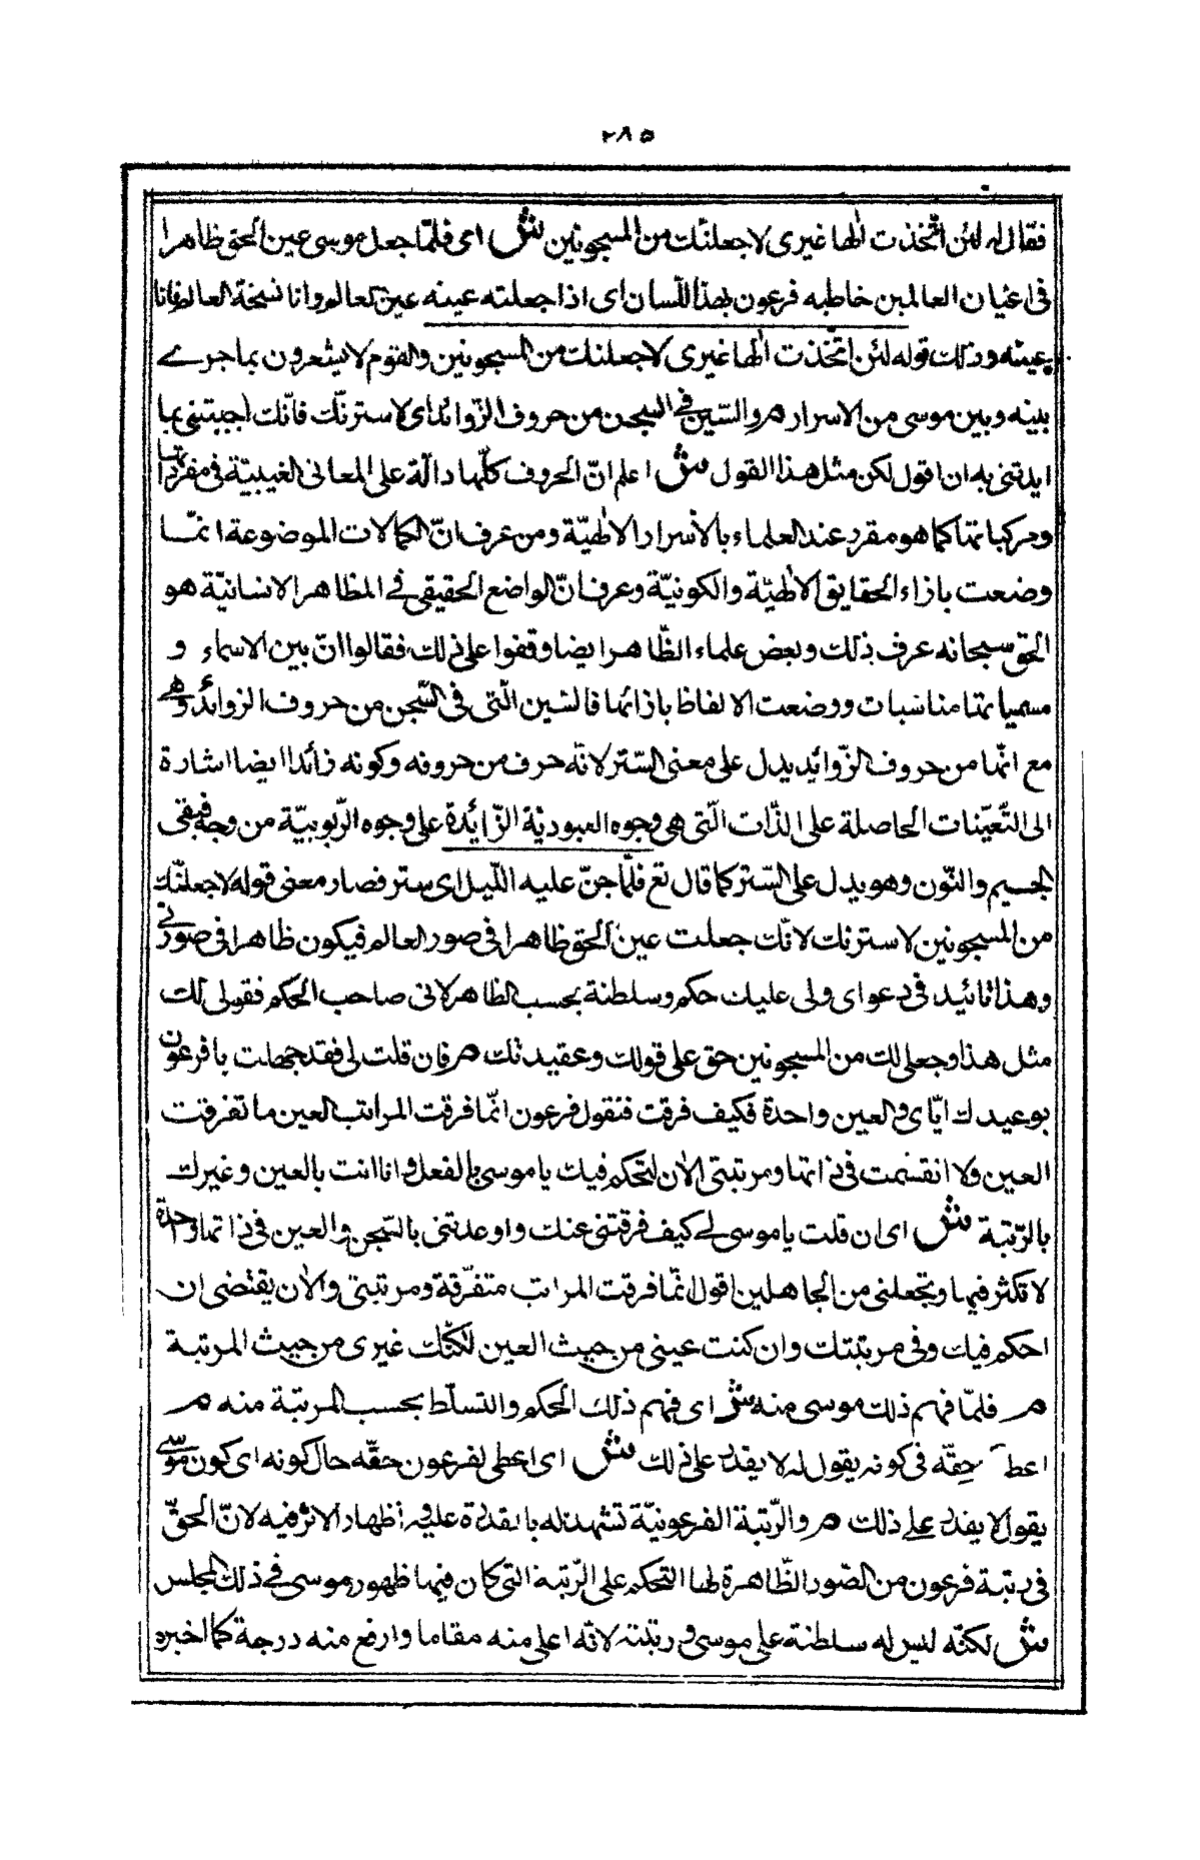 ٢٨٥
فقال له لئن اتّخذت الٰها غيرى لاجعلنّك من المسجونين ش اى فلمّا جعل موسى عين الحق ظاهرا
فى اعيان العالمين خاطبه فرعون بهذا اللّسان اى اذا جعلته عينه عين العالم وانا نسخة العالم فانا
بعينه وذلك قوله لئن اتّخذت الٰها غيرى لاجعلنك من المسجونين والقوم لا يشعرون بما جرے
بينه وبين موسى من الاسرار م والسّين فے السجن من حروف الزّوائد اى لاسترنّك فانّك اجبتنى بما
ايدتنى به ان اقول لكن مثل هذا القول ش اعلم انّ الحروف كلّها دالّة على المعانى الغيبيّة فى مفرداتها
ومركباتها كما هو مقرر عند العلماء بالأسرار الالٰهيّة ومن عرف انّ الكمالات الموضوعة انمّا
وضعت بازاء الحقايق الالٰهيّة والكونيّة وعرف انّ الواضع الحقيقى فے المظاهر الانسانيّة هو
الحق سبحانه عرف ذلك وبعض علماء الظّاهر ايضا وقفوا على ذلك فقالوا انّ بين الاسماء و
مسمياتها مناسبات ووضعت الالفاظ بازائها فالسّين الّتى فى السّجن من حروف الزوائد وهے
مع انّها من حروف الزّوائد يدل على معنى السّتر لانّه حرف من حروفه وكونه زائدا ايضا اشارة
الى التّعيّنات الحاصلة على الذّات الّتى هى وجوه العبوديّة الزّائدة على وجوه الرّبوبيّة من وجه فبقى
الجيم والنّون وهو يدل على السّتر كما قال تع فلمّا جنّ عليه اللّيل اى ستر فصار معنى قوله لاجعلنّك
من المسجونين لاسترنك لانّك جعلت عين الحق ظاهرا فى صور العالم فيكون ظاهرا فى صورتى
وهذا تائيد فى دعواى ولى عليك حكم وسلطنة بحسب الظاهر لانى صاحب الحكم فقولى لك
مثل هذا وجعلى لك من المسجونين حق على قولك وعقيدتك م فان قلت لى فقد جهلت يا فرعون
بوعيدك ايّاى والعين واحدة فكيف فرقت فنقول فرعون انّما فرقت المراتب العين ما تفرقت
العين ولا انقسمت فى ذاتها ومرتبتى الاٰن التحكم فيك يا موسى بالفعل وانا انت بالعين وغيرك
بالرّتبة ش اى ان قلت يا موسى لے كيف فرقتنى عنك واوعدتنى بالسّجن والعين فى ذاتها واحدة
لا تكثر فيها وتجعلنى من الجاهلين اقول انّما فرقت المراتب متفرّقة ومرتبتى والاٰن يقتضى ان
احكم فيك وفى مرتبتك وان كنت عينى من حيث العين لكنّك غيرى من حيث المرتبة
م فلمّا فهم ذلك موسى منه ش اى فهم ذلك الحكم والتسلّط بحسب المرتبة منه م
اعط حقّه فى كونه يقول له لا يقدر على ذلك ش اى اعطى لفرعون حقّه حال كونه اى كون موسى
يقول لا يقدر علے ذلك م والرّتبة الفرعونيّة تشهد له بالقدرة عليه واظهار الاثر فيه لانّ الحقّ
فى رتبة فرعون من الصّور الظّاهرة لها التحكم على الرّتبة التى كان فيها ظهور موسى فے ذلك المجلس
ش لكنّه ليس له سلطنة على موسى فى رتبته لانّه اعلى منه مقاما وارفع منه درجة كما اخبره